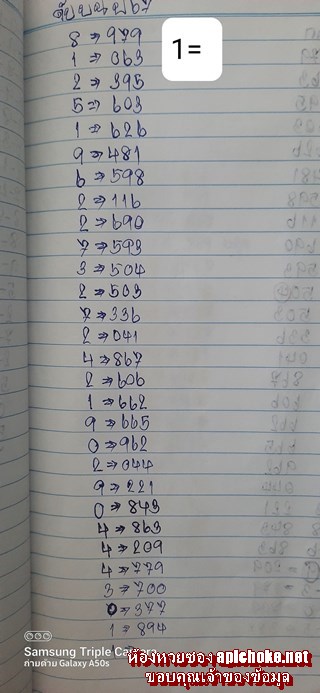 8 → 979
1=
1 → 063
2 → 395
5 → 603
1 → 626
9 → 481
6 → 598
2 → 116
2 → 690
7 → 593
3 → 504
2 → 503
7 → 336
2 → 041
4 → 867
2 → 606
1 → 662
9 → 665
0 → 962
2 → 044
9 → 221
0 → 843
4 → 863
4 → 209
4 → 779
3 → 700
0 → 377
1 → 894
Samsung Triple Camera
ถ่ายด้วย Galaxy A50s
ห้องหวยซอง apichoke.net
ขอบคุณเจ้าของข้อมูล